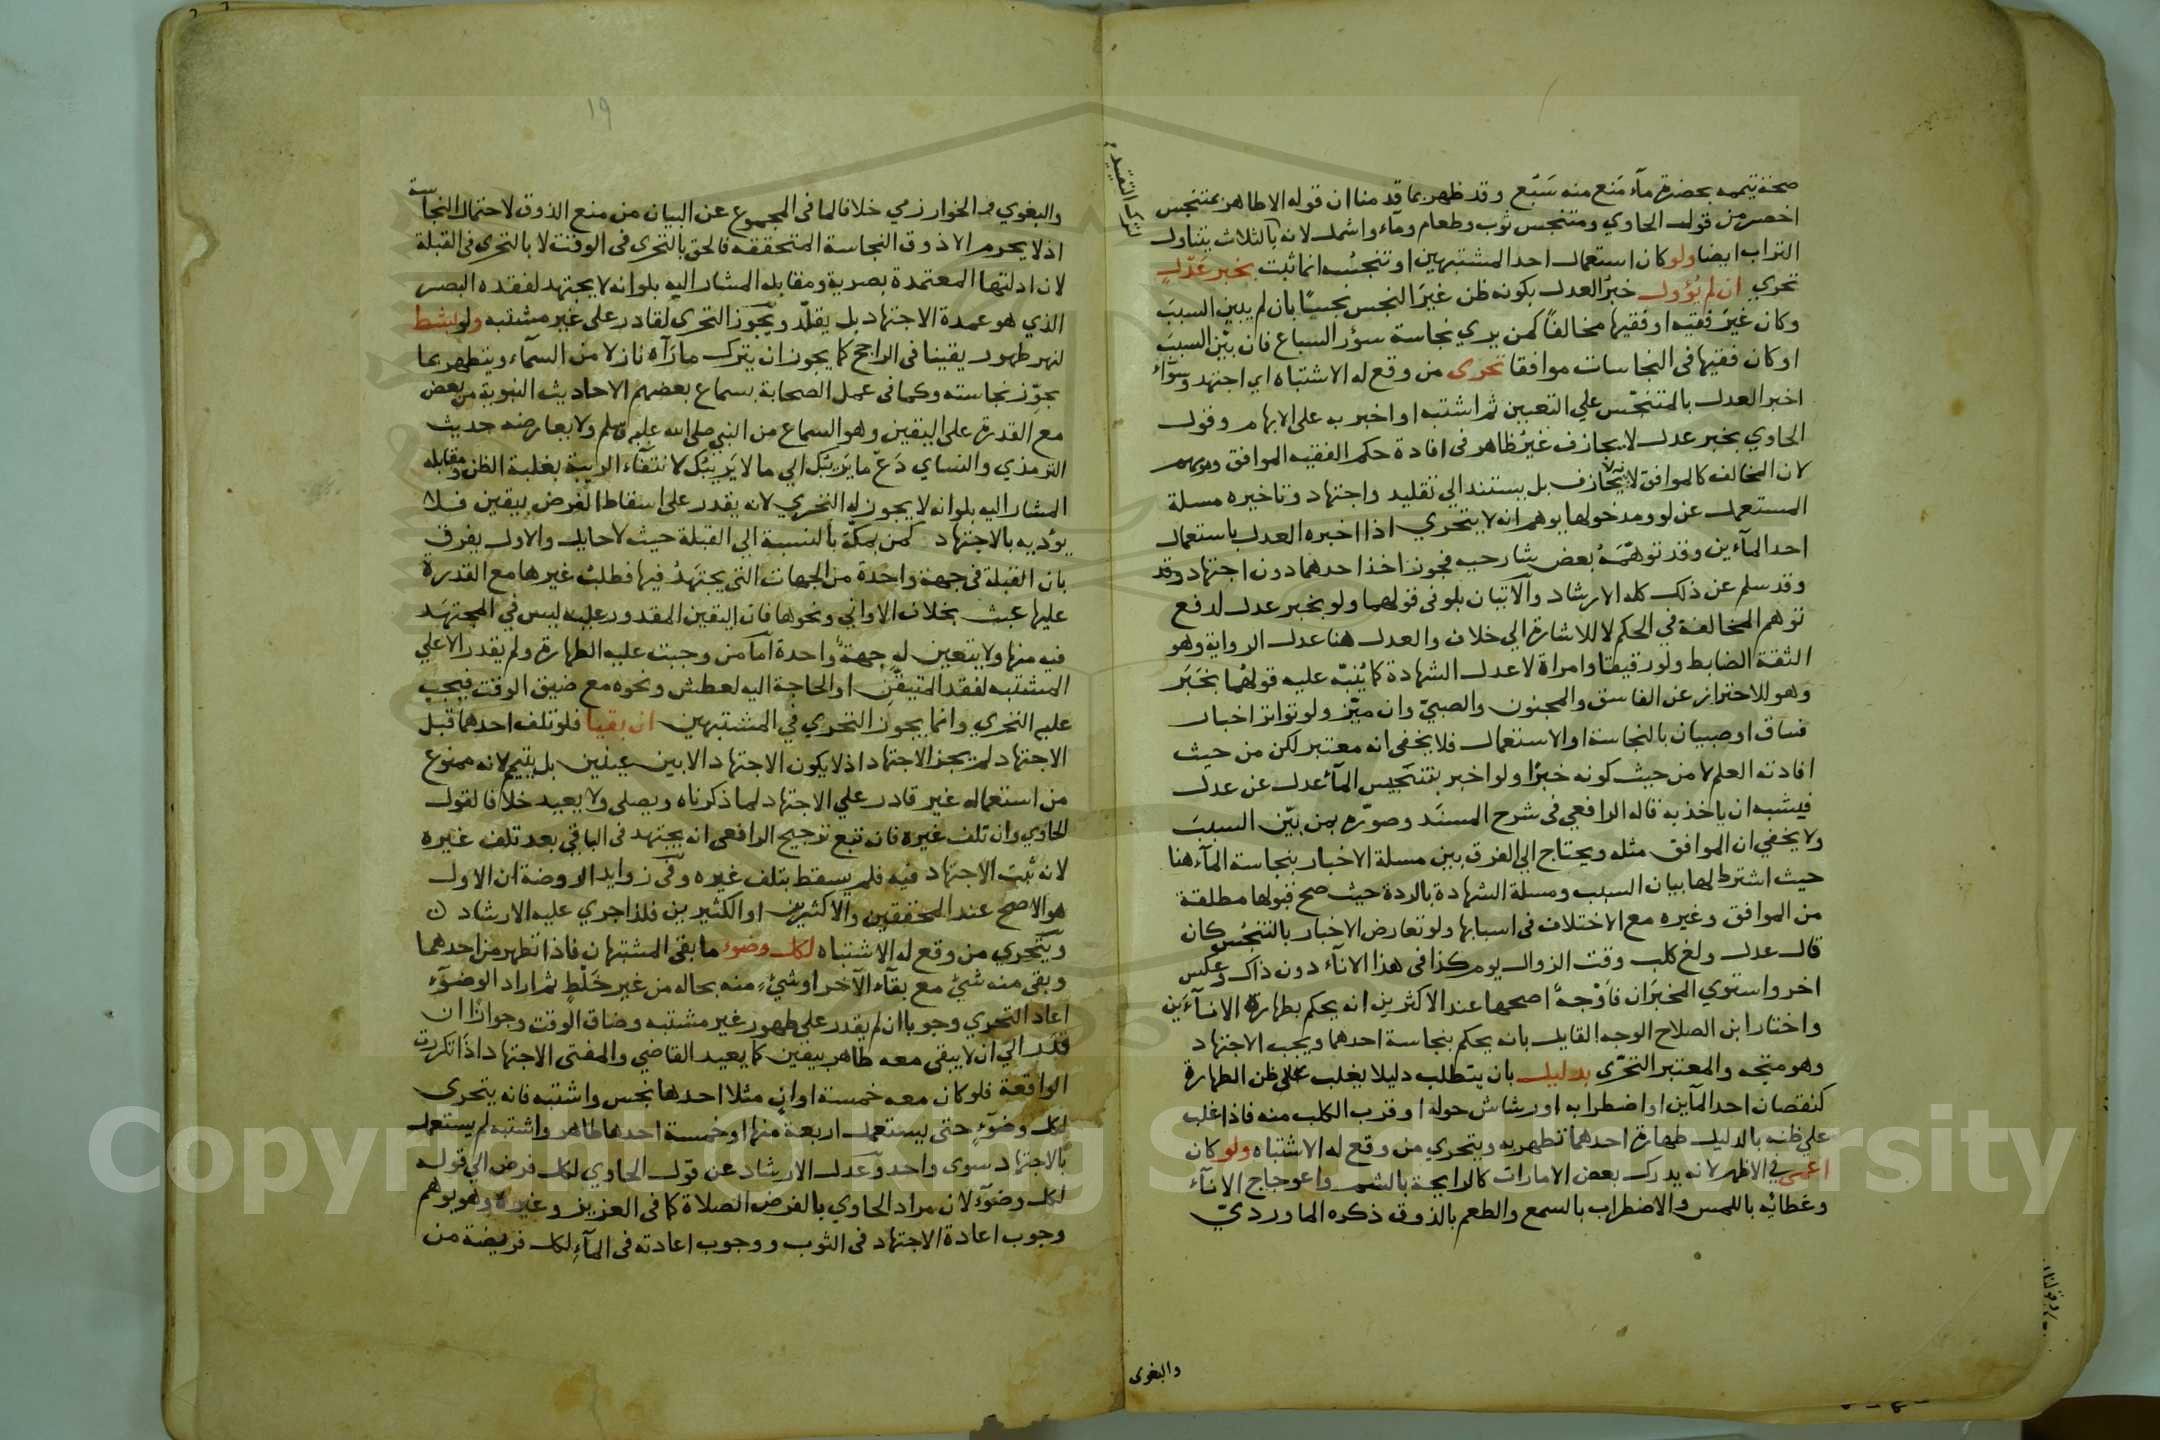 صحة تيممه بحضرة ماء منع منه سبع وقد ظهر بما قدمنا ان قوله الاطاهر بمتنجس
اخصر من قول الحاوي ومتنجس ثوب وطعام وماء واشمل لانه بالثلاث يتناول
التراب ايضا ولو كان استعمال احد المشتبهين او تنجسه انما ثبت بخبر عَدْلٍ
تحري ان لم يُؤول خبرُ العدل بكونه ظن غيرَ النجس نجسًا بان لم يبين السببَ
وكان غيرَ فقيه او فقيها مخالفًا كمن يري نجاسة سؤر السباع فان بيّن السببَ
او كان فقيها في النجاسات موافقا تحرى من وقع له الاشتباه اي اجتهد وسوآء
اخبر العدل بالمتنجّس علي التعيين ثم اشتبه او اخبر به على الابهام وقول
الحاوي بخبر عدل لا يجازف غيرُ ظاهر في افادة حكم الفقيه الموافق
لان المخالف كالموافق لا يجازف بل يستند الي تقليد واجتهاد وتاخيره مسلة
المستعمل عن لو ومدخولها يوهم انه لا يتحري اذا اخبره العدل باستعمال
احد المآءين وقد توهّمَهُ بعض شارحيه فجوز اخذ احدهما دون اجتهاد وقد
وقد سلم عن ذلك كله الارشاد والاتيان بلو في قولهما ولو بخبر عدل لدفع
توهم المخالفة في الحكم لا للاشارة الي خلاف والعدل هنا عدل الرواية وهو
الثقة الضابط ولو رقيقا وامراة لا عدل الشهادة كما يُنبّه عليه قولهُما بخَبَر
وهو للاحتراز عن الفاسق والمجنون والصبيّ وان ميّز ولو تواتر اخبار
فساق او صبيان بالنجاسة او الاستعمال فلا يخفي انه معتبر لكن من حيث
افادته العلم لا من حيث كونه خبرًا ولو اخبر بتنجيس المآء عدل عن عدل
فيشبه ان ياخذ به قاله الرافعي في شرح المسنَد وصوّره بمن بيّن السببَ
ولا يخفي ان الموافق مثله ويحتاج الي الفرق بين مسلة الاخبار بنجاسة المآء هنا
حيث اشترط لها بيان السبب ومسلة الشهادة بالردة حيث صح قبولها مطلقة
من الموافق وغيره مع الاختلاف في اسبابها ولو تعارض الاخبار بالتنجُس كان
قال عدل ولغ كلب وقت الزوال يوم كذا في هذا الاناء دون ذاك وعكس
اخر واستوي المخبرَان فاَوْجهٌ اصحها عند الاكثرين انه يحكم بطهارة الانآءَين
واختار ابن الصلاح الوجه القايل بانه يحكم بنجاسة احدهما ويجب الاجتهاد
وهو متجه والمعتبر التحرّي بدليل بان يتطلب دليلا يغلب على ظن الطهارة
كنقصان احد المآين او اضطرابه او رشاش حوله او قرب الكلب منه فاذا غلب
علي ظنه بالدليل طهارة احدهما تطهر به ويتحري من وقع له الاشتباه ولو كان
اعمى في الاظهر لانه يدرك بعض الامارات كالرايحة بالشم واعوجاج الانآء
وغطائِه باللمس والاضطراب بالسمع والطعم بالذوق ذكره الماورديّ
والبغوي
١٩
والبغوي والخوارزمي خلافا لما في المجموع عن البيان من منع الذوق لاحتمال النجاسة
اذ لا يحرم الا ذوق النجاسة المتحققه فالحق بالتحري في الوقت لا بالتحري في القبلة
لان ادلتها المعتمدة بصرية ومقابله المشار اليه بلو انه لا يجتهد لفقده البصر
الذي هو عمدة الاجتهاد بل يقلّد ويجوز التحري لقادر على غير مشتبه ولو بشط
لنهر طهور يقينا في الراجح كما يجوز ان يترك ما رآه نازلا من السمآء ويتطهر بما
يجوّز نجاسته وكما في عمل الصحابة بسماع بعضهم الاحاديث النبوية من بعض
مع القدرة على اليقين وهو السماع من النبي صلى الله عليه وسلم ولا يعارضه حديث
الترمذي والنساي دَعْ ما يَرِيبُك الي ما لا يَريبُك لانتفآء الريبة بغلبة الظن ومقابله
المشار اليه بلو انه لا يجوز له التحري لانه يقدر على اسقاط الفرض بيقين فلا
يؤديه بالاجتهاد كمن بمكّة بالنسبة الي القبلة حيث لا حايل والاول يفرق
بان القبلة في جهة واحدة من الجهات التي يجتهدُ فيها فطلبُ غيرها مع القدرة
عليها عبث بخلاف الاواني ونحوها فان اليقين المقدور عليه ليس في المجتهَد
فيه منها ولا يتعين له جهةٌ واحدة اما من وجبت عليه الطهارة ولم يقدر الا علي
المشتبه لفقد المتيقَّنِ او الحاجة اليه لعطش ونحوه مع ضيق الوقت فيجب
عليه التحري وانما يجوز التحري في المشتبهين ان بقيا فلو تلف احدهما قبل
الاجتهاد لم يجز الاجتهاد اذ لا يكون الاجتهاد الا بين عينين بل يتيمم لانه ممنوع
من استعماله غير قادر علي الاجتهاد لما ذكرناه ويصلي ولا يعيد خلافا لقول
الحاوي وان تلف غيره فانه تبع ترجيح الرافعي انه يجتهد في الباقي بعد تلف غيره
لانه ثبت الاجتهاد فيه فلم يسقط بتلف غيره وفي زوايد الروضة ان الاول
هو الاصح عند المحققين والاكثرين او الكثيرين فلذا جري عليه الارشاد
ويتحري من وقع له الاشتباه لكل وضوء ما بقي المشتبهان فاذا تطهر من احدهما
وبقي منه شئ مع بقآء الآخر او شئٍ منه بحاله من غير خَلْطٍ ثم اراد الوضوء
اعاد التحري وجوبا ان لم يقدر على طهور غير مشتبه وضاق الوقت وجوازًا ان
قدَر الي ان لا يبقى معه طاهر بيقين كما يعيد القاضي والمفتي الاجتهاد اذا تكررت
الواقعة فلو كان معه خمسة اوانٍ مثلا احدها نجس واشتبه فانه يتحرى
لكل وضوءٍ حتى يستعمل اربعة منها او خمسة احدها طاهر واشتبه لم يستعمل
بالاجتهاد سوى واحد وعدل الارشاد عن قول الحاوي لكل فرض الي قوله
لكل وضوء لان مراد الحاوي بالفرض الصلاة كما في العزيز وغيره وهو يوهم
وجوب اعادة الاجتهاد في الثوب ووجوب اعادته في المآءِ لكل فريضة من
Copyright © King Saud University